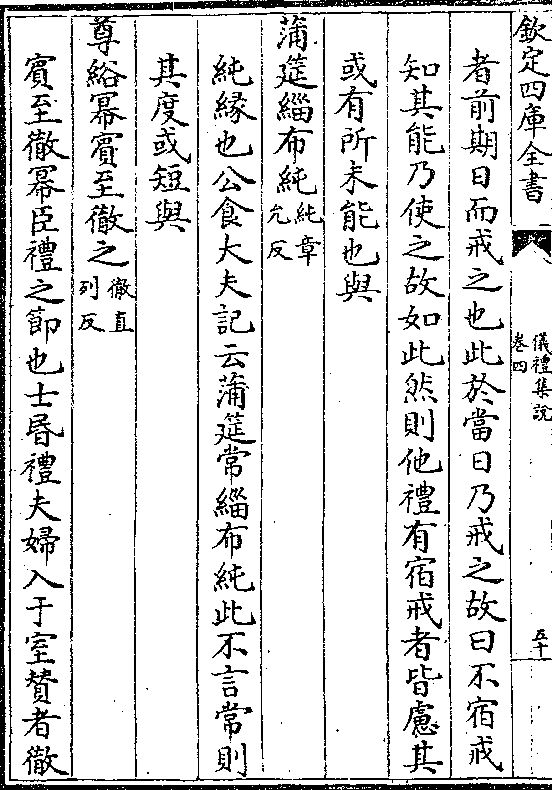 欽定四庫全書
儀禮集說
卷四
五十
者前期日而戒之也此於當日乃戒之故曰不宿戒
知其能乃使之故如此然則他禮有宿戒者皆慮其
或有所未能也與
蒲筵緇布純純章允反
純縁也公食大夫記云蒲筵常緇布純此不言常則
其度或短與
尊綌冪賔至徹之徹直列反
賔至徹冪臣禮之節也士昏禮夫婦入于室贊者徹